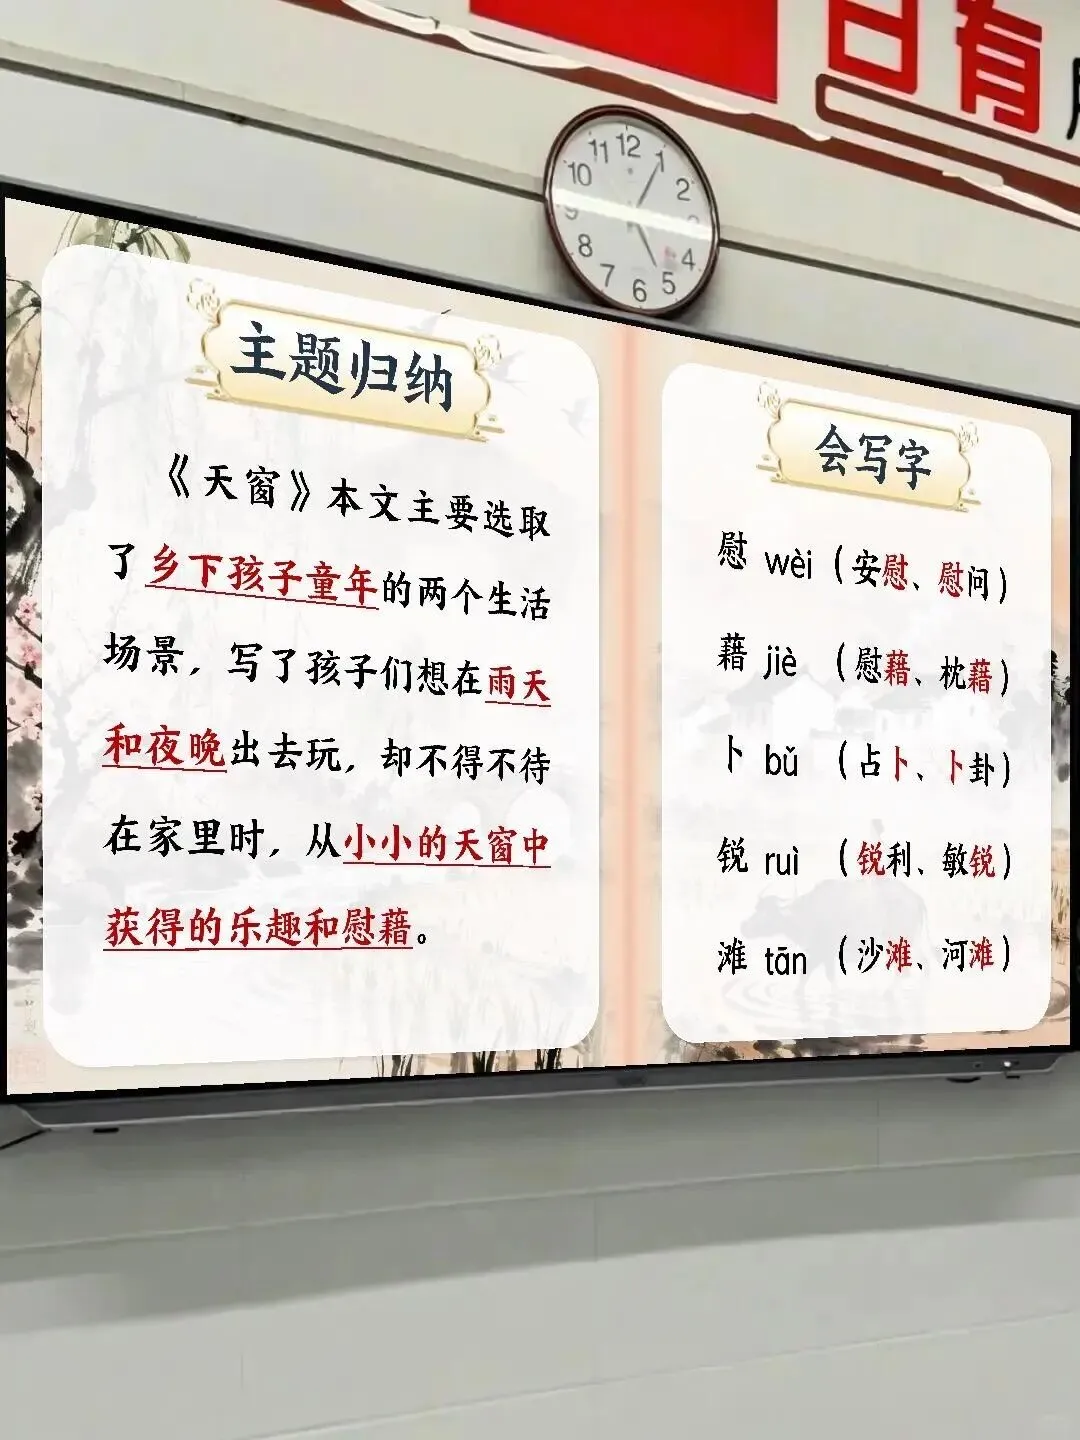 日有
11 12 1
10 2
9 3
8 4
7 6 5
主题归纳
《天窗》本文主要选取
了乡下孩子童年的两个生活
场景，写了孩子们想在雨天
和夜晚出去玩，却不得不待
在家里时，从小小的天窗中
获得的乐趣和慰藉。
会写字
慰 wèi（安慰、慰问）
藉 jiè （慰藉、枕藉）
卜 bǔ （占卜、卜卦）
锐 ruì （锐利、敏锐）
滩 tān （沙滩、河滩）